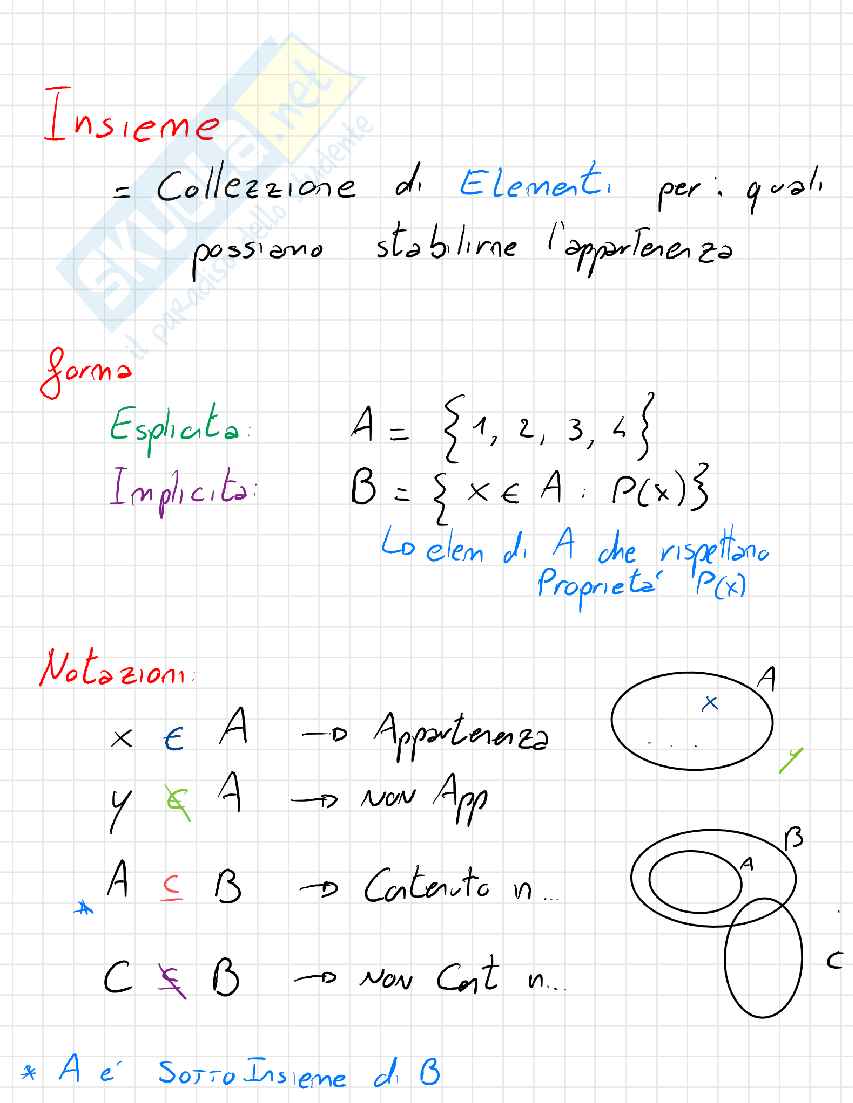 SKUOLA.net
il paradiso dello studente
Insieme
= Collezzione di Elementi per i quali
possiamo stabilirne l'appartenenza
forma
Esplicita: A = {1, 2, 3, 4}
Implicita: B = {x ∈ A : P(x)}
Lo elem di A che rispettano
Proprietà P(x)
Notazioni:
x ∈ A → Appartenenza
y ∉ A → NON App
* A ⊆ B → Contenuto in...
C ⊈ B → NON Cont in...
A
x
....
y
B
A
C
* A è SottoInsieme di B